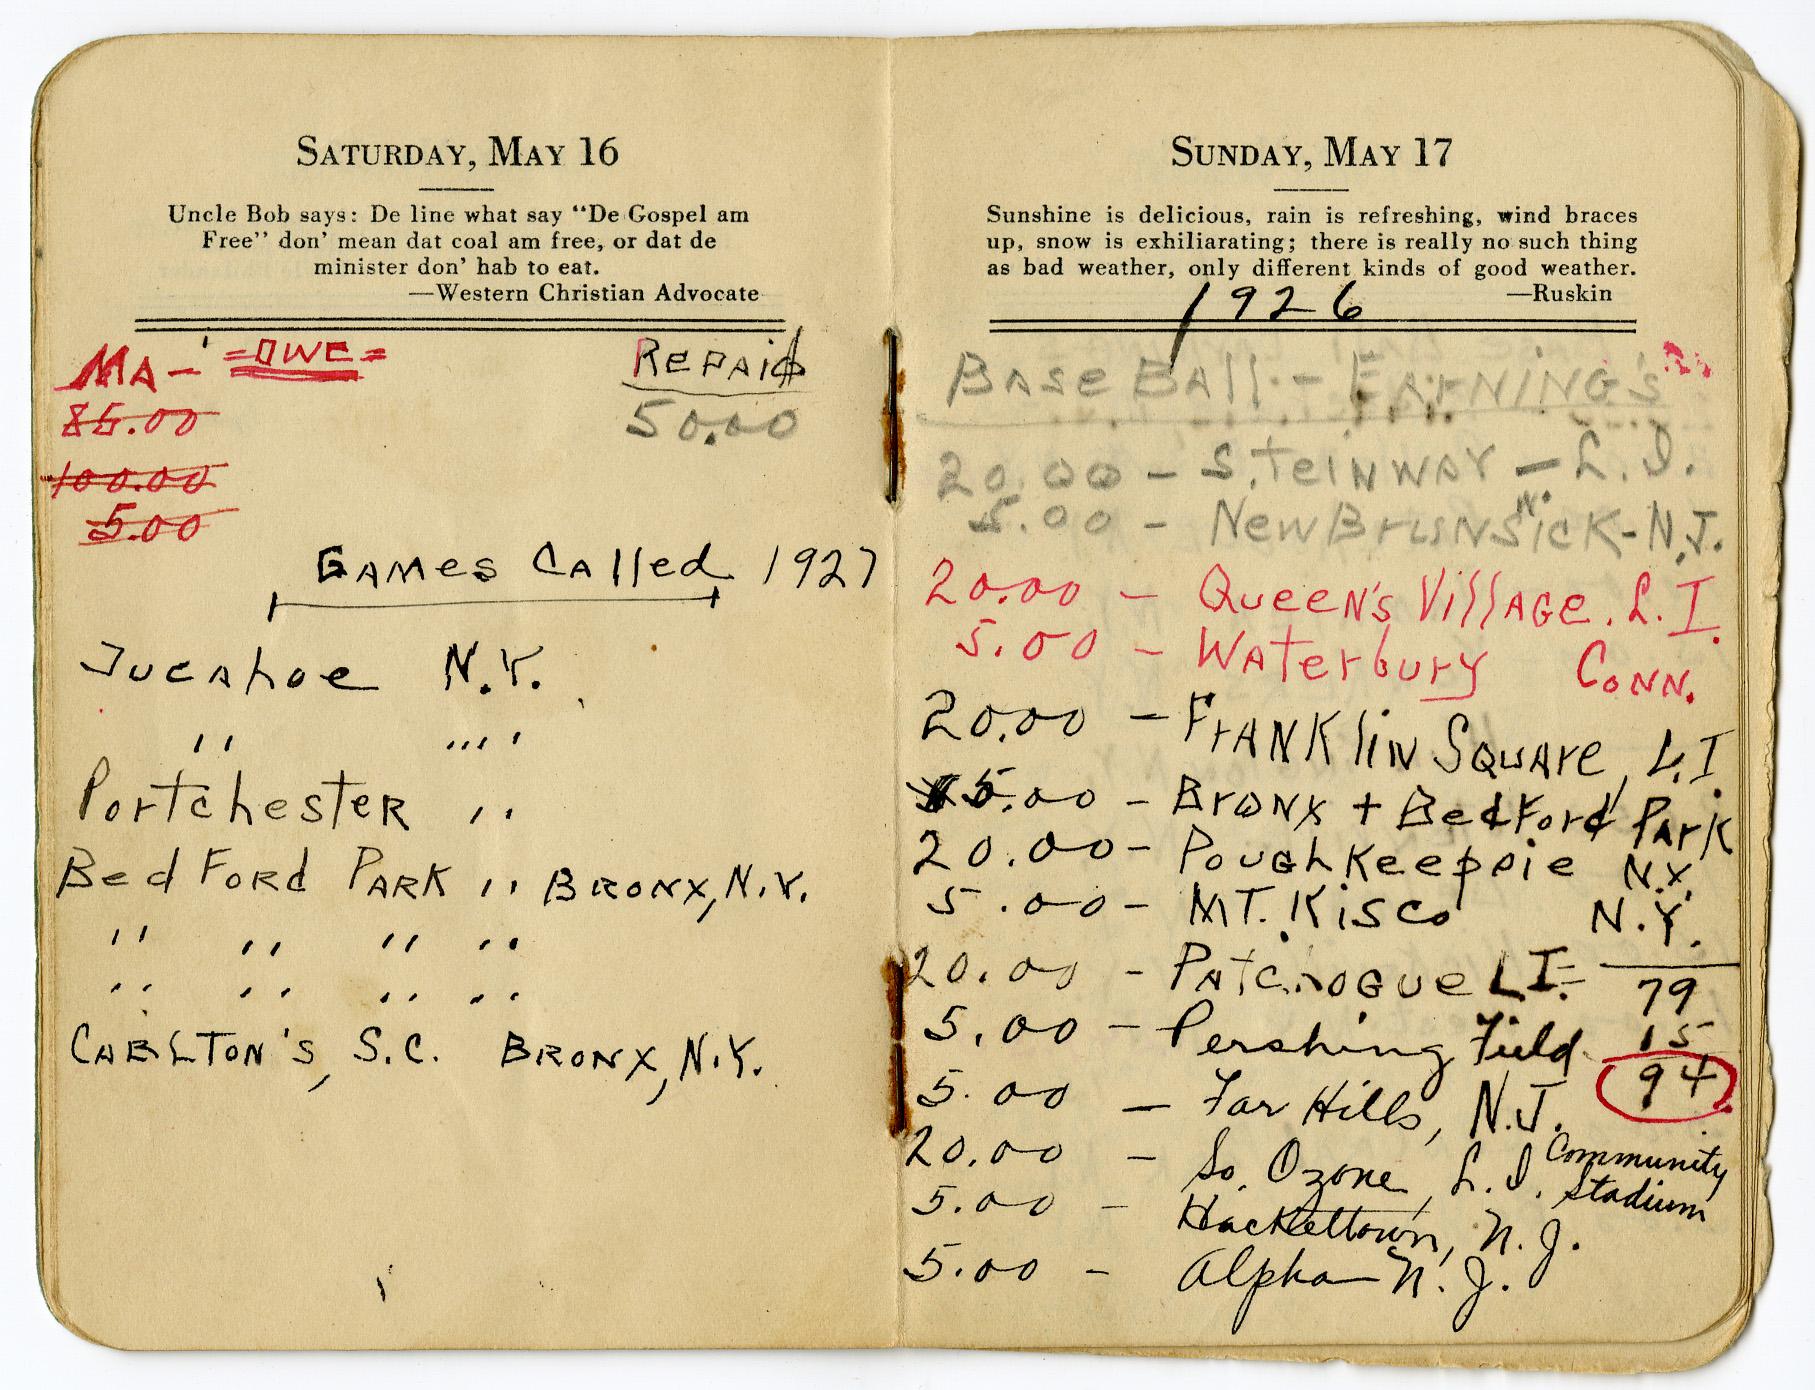 SATURDAY, MAY 16
Uncle Bob says: De line what say "De Gospel am
Free" don' mean dat coal am free, or dat de
minister don' hab to eat.
—Western Christian Advocate
MA - =OWE= REPAid
85.00 50.00
100.00
5.00
GAMes CAlled 1927
Tucahoe N.Y.
" " " "
PortchesTER "
Bed Ford PARK " BRONX, N.Y.
" " " "
" " " "
CARLTON'S, S.C. BRONX, N.Y.
SUNDAY, MAY 17
Sunshine is delicious, rain is refreshing, wind braces
up, snow is exhiliarating; there is really no such thing
as bad weather, only different kinds of good weather.
—Ruskin
1926
BAse BAll - EArNiNG's
20.00 - STeiNWAY - L.I.
5.00 - New BruNSwicK - N.J.
20.00 - QueeN's VillAGe. L.I.
5.00 - WATerbury CoNN.
20.00 - FrANKliN SQUAre, L.I.
5.00 - BrONX + BedFord PArK
20.00 - PoughKeepsie N.Y.
5.00 - MT. KisCo N.Y.
20.00 - PATChOGUe L.I. = 79
5.00 - Pershing Field 15
94
5.00 - Far Hills, N.J.
20.00 - So. Ozone, L.I. Community
Stadium
5.00 - Hackettown, N.J.
5.00 - Alpha N.J.